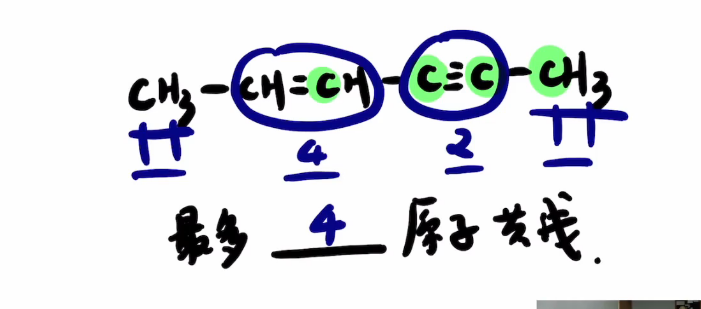 CH₃-CH=CH-C≡C-CH₃
4 2
最多 4 原子共线.